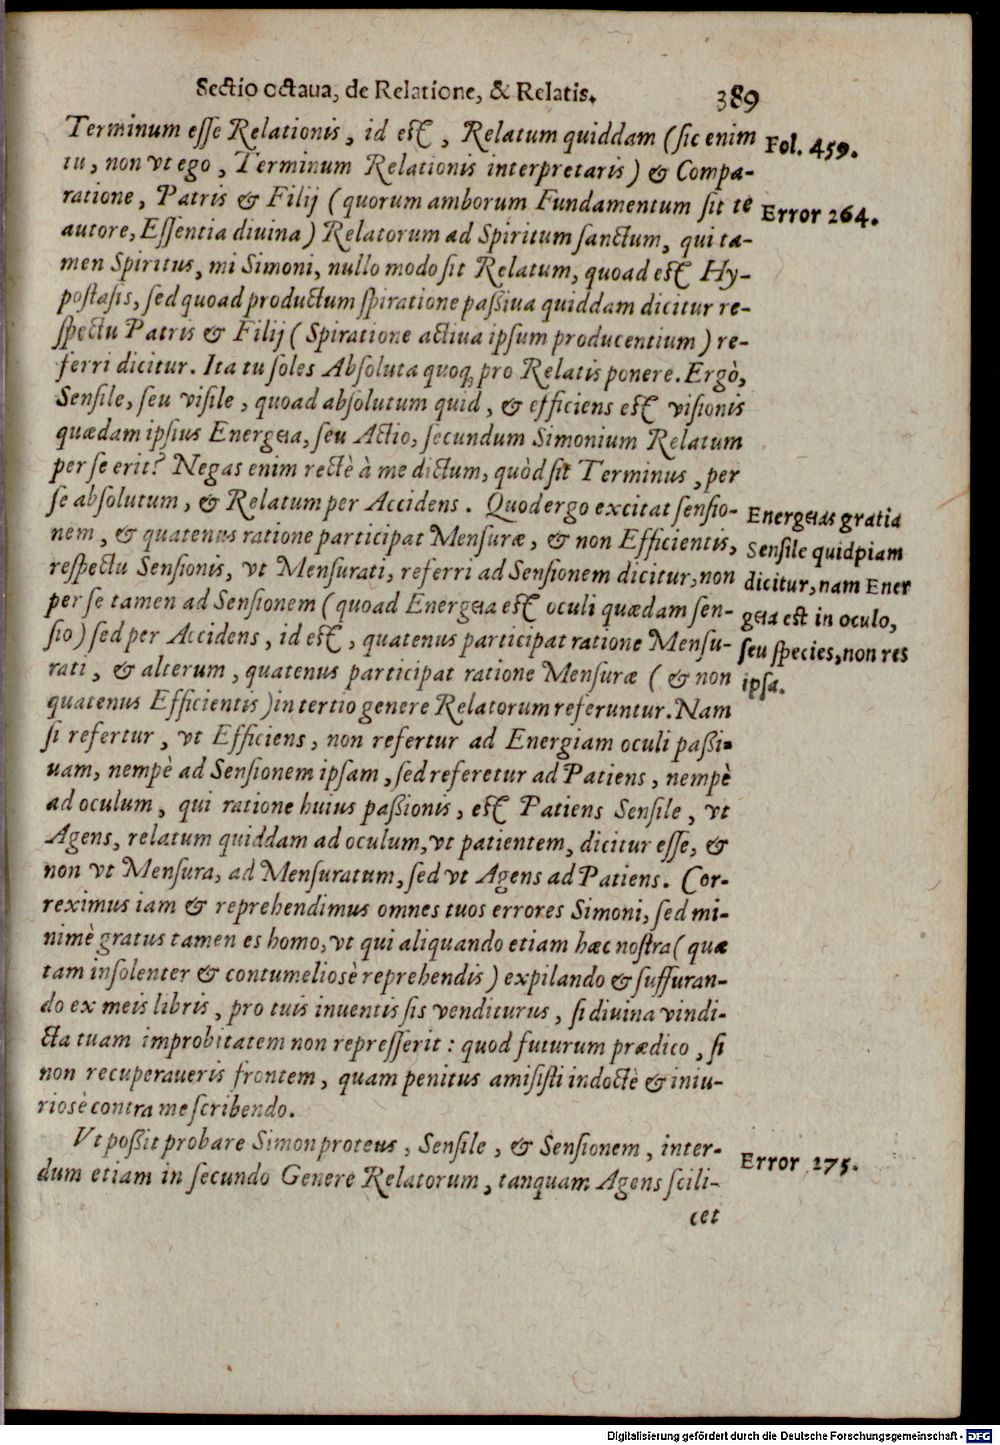 Sectio octaua, de Relatione, & Relatis. 389
Terminum esse Relationis, id est, Relatum quiddam (sic enim
Fol. 459.
tu, non vt ego, Terminum Relationis interpretaris) & Compa-
ratione, Patris & Filij (quorum amborum Fundamentum sit te
Error 264.
autore, Essentia diuina) Relatorum ad Spiritum sanctum, qui ta-
men Spiritus, mi Simoni, nullo modo sit Relatum, quoad est Hy-
postasis, sed quoad productum spiratione passiua quiddam dicitur re-
spectu Patris & Filij (Spiratione actiua ipsum producentium) re-
ferri dicitur. Ita tu soles Absoluta quoq; pro Relatis ponere. Ergò,
Sensile, seu visile, quoad absolutum quid, & efficiens est visionis
quædam ipsius Energeia, seu Actio, secundum Simonium Relatum
per se erit? Negas enim rectè à me dictum, quòd sit Terminus, per
se absolutum, & Relatum per Accidens. Quod ergo excitat sensio-
Energeias gratia
nem, & quatenus ratione participat Mensuræ, & non Efficientis,
Sensile quidpiam
respectu Sensionis, vt Mensurati, referri ad Sensionem dicitur, non
dicitur, nam Ener
per se tamen ad Sensionem (quoad Energeia est oculi quædam sen-
geia est in oculo,
sio) sed per Accidens, id est, quatenus participat ratione Mensu-
seu species, non res
rati, & alterum, quatenus participat ratione Mensuræ (& non
ipsa.
quatenus Efficientis) in tertio genere Relatorum referuntur. Nam
si refertur, vt Efficiens, non refertur ad Energiam oculi passi-
uam, nempè ad Sensionem ipsam, sed referetur ad Patiens, nempè
ad oculum, qui ratione huius passionis, est Patiens Sensile, vt
Agens, relatum quiddam ad oculum, vt patientem, dicitur esse, &
non vt Mensura, ad Mensuratum, sed vt Agens ad Patiens. Cor-
reximus iam & reprehendimus omnes tuos errores Simoni, sed mi-
nimè gratus tamen es homo, vt qui aliquando etiam hæc nostra (quæ
tam insolenter & contumeliosè reprehendis) expilando & suffuran-
do ex meis libris, pro tuis inuentis sis venditurus, si diuina vindi-
cta tuam improbitatem non represserit: quod futurum prædico, si
non recuperaueris frontem, quam penitus amisisti indoctè & iniu-
riosè contra me scribendo.
Vt possit probare Simon proteus, Sensile, & Sensionem, inter-
Error 275.
dum etiam in secundo Genere Relatorum, tanquam Agens scili-
cet
Digitalisierung gefördert durch die Deutsche Forschungsgemeinschaft - DFG